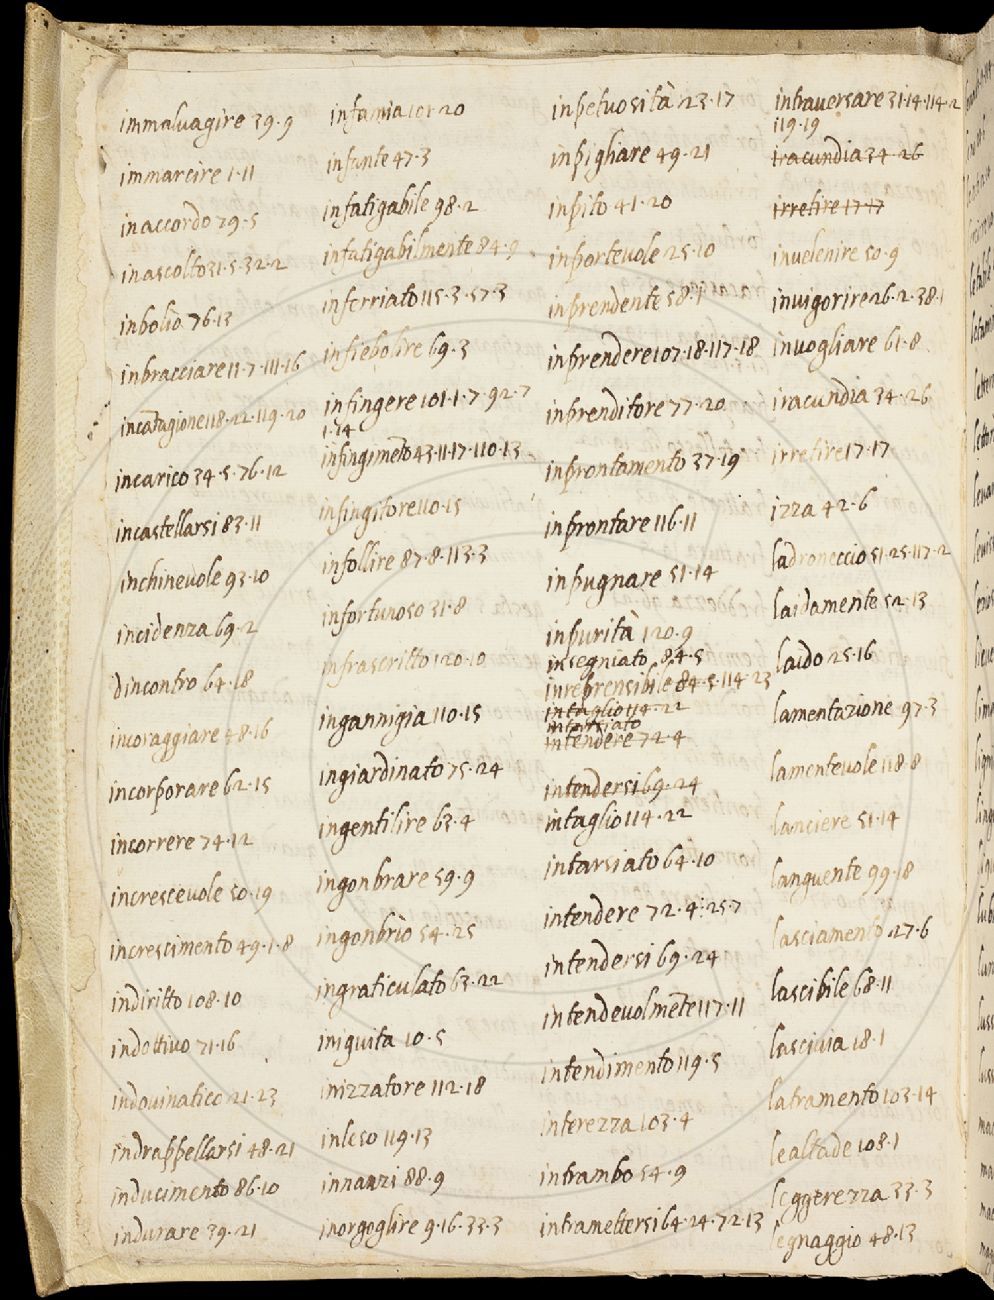 immaluagire 39·9
immarcire 1·11
inaccordo 79·5
inascolto 31·5·32·2
inbolio 76·13
inbracciare 11·7·111·16
incãtagione 118·22·119·20
incarico 34·5·76·12
incastellarsi 83·11
inchineuole 93·10
incidenza 69·2
dincontro 64·18
incoraggiare 48·16
incorporare 62·15
incorrere 74·12
incresceuole 50·19
increscimento 49·1·8
indiritto 108·10
indottiuo 71·16
indouinatico 21·23
indrappellarsi 48·21
inducimento 86·10
indurare 39·21
infamia 101·20
infante 47·3
infatigabile 98·2
infatigabilmente 84·9
inferriato 115·3·57·3
infiebolire 69·3
infingere 101·1·7·92·7
1·14
infingimẽto 43·11·17·110·13
infingitore 110·15
infollire 87·8·113·3
infortunoso 31·8
infrascritto 120·10
ingannigia 110·15
ingiardinato 75·24
ingentilire 63·4
ingonbrare 59·9
ingonbrio 54·25
ingraticulato 63·22
iniquita 10·5
inizzatore 112·18
inleso 119·13
innanzi 88·9
inorgoglire 9·16·33·3
inpetuosità 23·17
inpigliare 49·21
inpito 41·20
inporteuole 25·10
inprendente 58·4
inprendere 107·18·117·18
inprenditore 77·20
inprontamento 37·19
inprontare 116·11
inpugnare 51·14
inpurità 120·9
insegniato 84·5
inreprensibile 84·5·114·23
intaglio 114·22
intarsiato
intendere 72·4
intendersi 69·24
intaglio 114·22
intarsiato 64·10
intendere 72·4·25·7
intendersi 69·24
intendeuolmẽte 117·11
intendimento 119·5
interezza 103·4
intrambo 54·9
intramettersi 64·24·72·13
intrauersare 31·14·114·2
119·19
iracundia 34·26
irretire 17·17
inuelenire 50·9
inuigorire 26·2·38·1
inuogliare 61·8
iracundia 34·26
irretire 17·17
izza 42·6
ladroneccio 51·25·117·2
laidamente 52·13
laido 25·16
lamentazione 97·3
lamenteuole 118·8
lanciere 51·14
languente 99·18
lasciamento 27·6
lascibile 68·11
lasciuia 18·1
latramento 103·14
lealtade 108·1
leggerezza 33·3
legnaggio 48·13